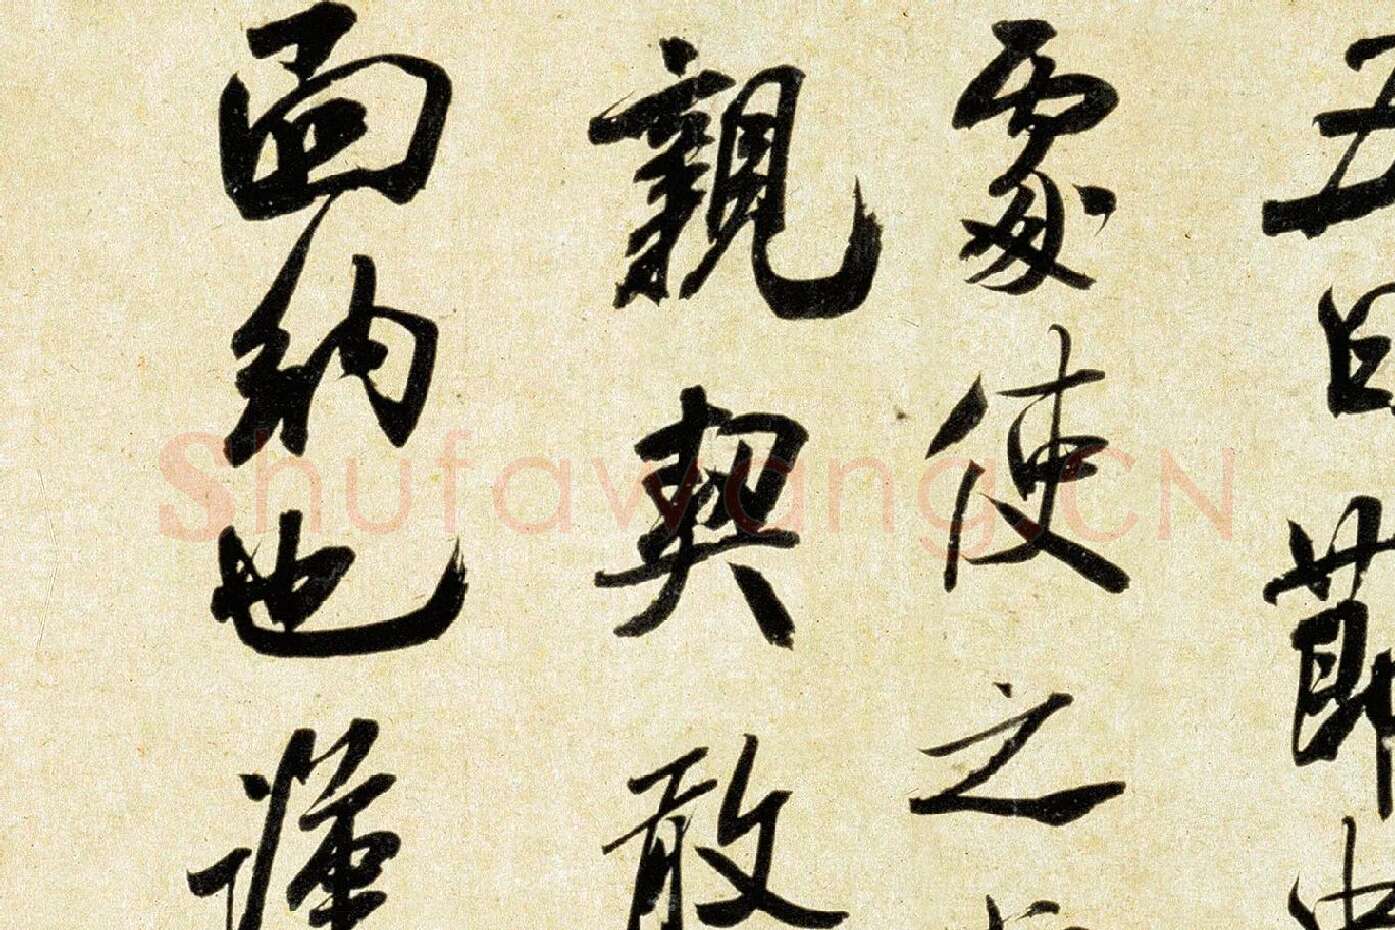 五日節中
處使之
親契敢
面納也謹
Shufawang.CN